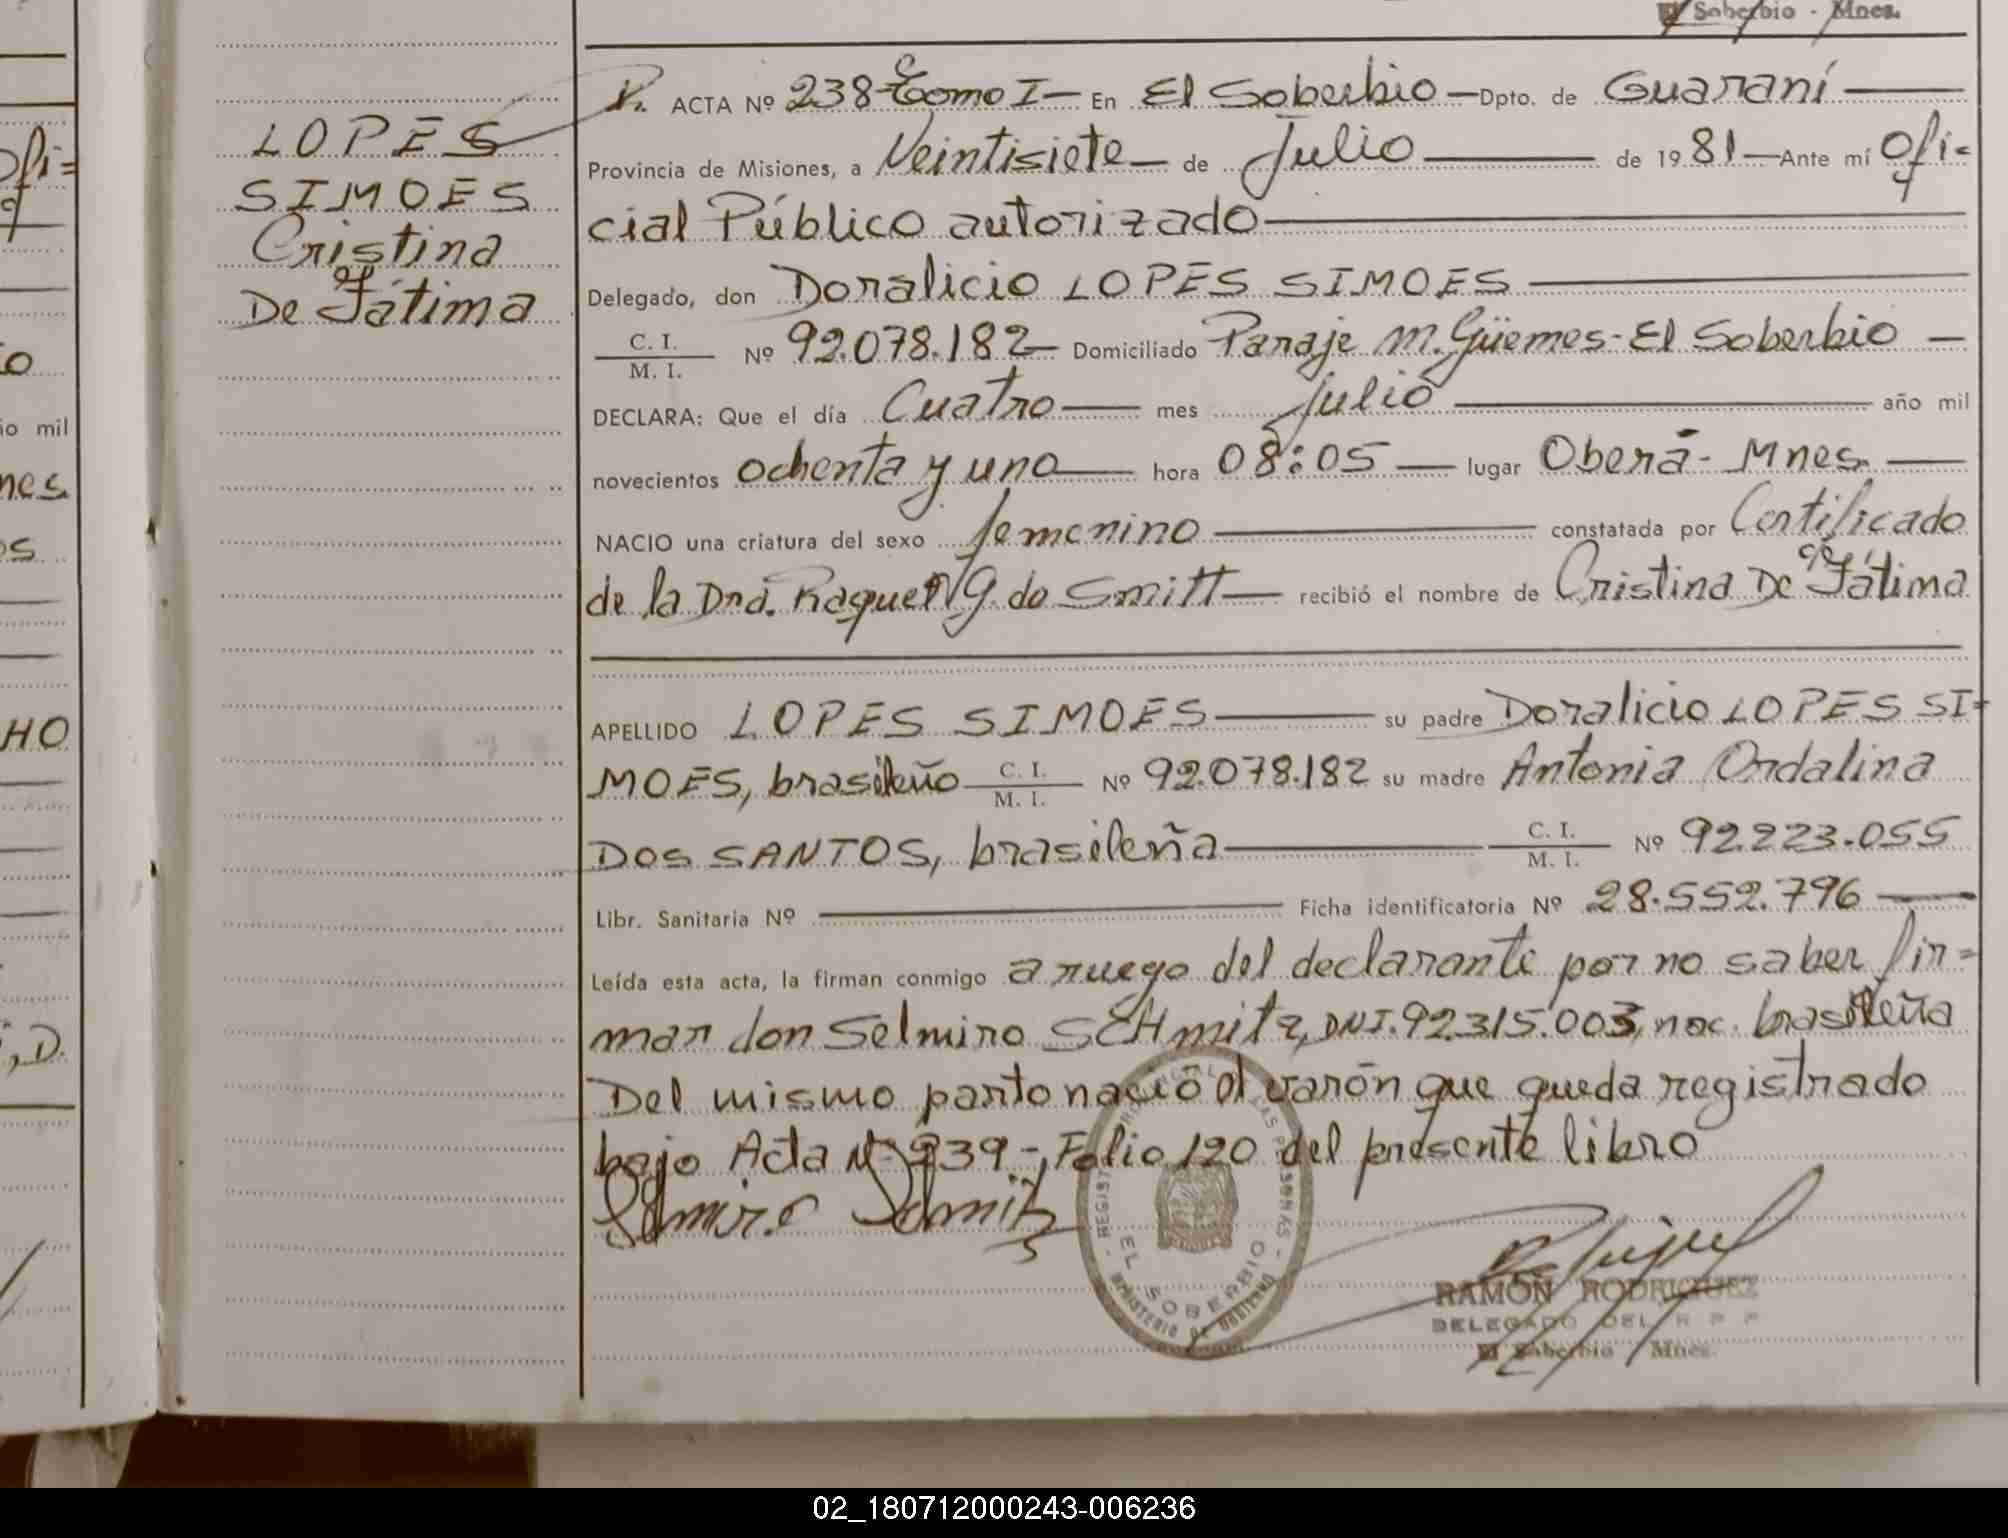 El Soberbio - Mnes.
LOPES
SIMOES
Cristina
De Fátima
ACTA Nº 238-Tomo I- En El Soberbio - Dpto. de Guaraní
Provincia de Misiones, a Veintisiete de Julio de 1981 - Ante mí Ofi=
cial Público autorizado
Delegado, don Doralicio LOPES SIMOES
C. I.
M. I. Nº 92.078.182 Domiciliado Paraje M. Güemes - El Soberbio
DECLARA: Que el día Cuatro mes julio año mil
novecientos ochenta y uno hora 08:05 lugar Oberá - Mnes.
NACIO una criatura del sexo femenino constatada por Certificado
de la Dra. Raquel G. de Smitt recibió el nombre de Cristina De Fátima
APELLIDO LOPES SIMOES su padre Doralicio LOPES SI-
MOES, brasileño C. I. M. I. Nº 92.078.182 su madre Antonia Ordalina
DOS SANTOS, brasileña C. I. M. I. Nº 92.223.055
Libr. Sanitaria Nº Ficha identificatoria Nº 28.552.796
Leída esta acta, la firman conmigo a ruego del declarante por no saber fir=
mar don Selmiro SCHmitz, DNI. 92.315.003, nac. brasileña
Del mismo parto nació el varón que queda registrado
bajo Acta Nº 239-, Folio 120 del presente libro
Selmiro Schmitz
EL SOBERBIO
MINISTERIO DE GOBIERNO
RAMON RODRIGUEZ
DELEGADO DEL R P P
El Soberbio Mnes.
ofi=
o
io mil
nes
os
HO
, D.
02_180712000243-006236